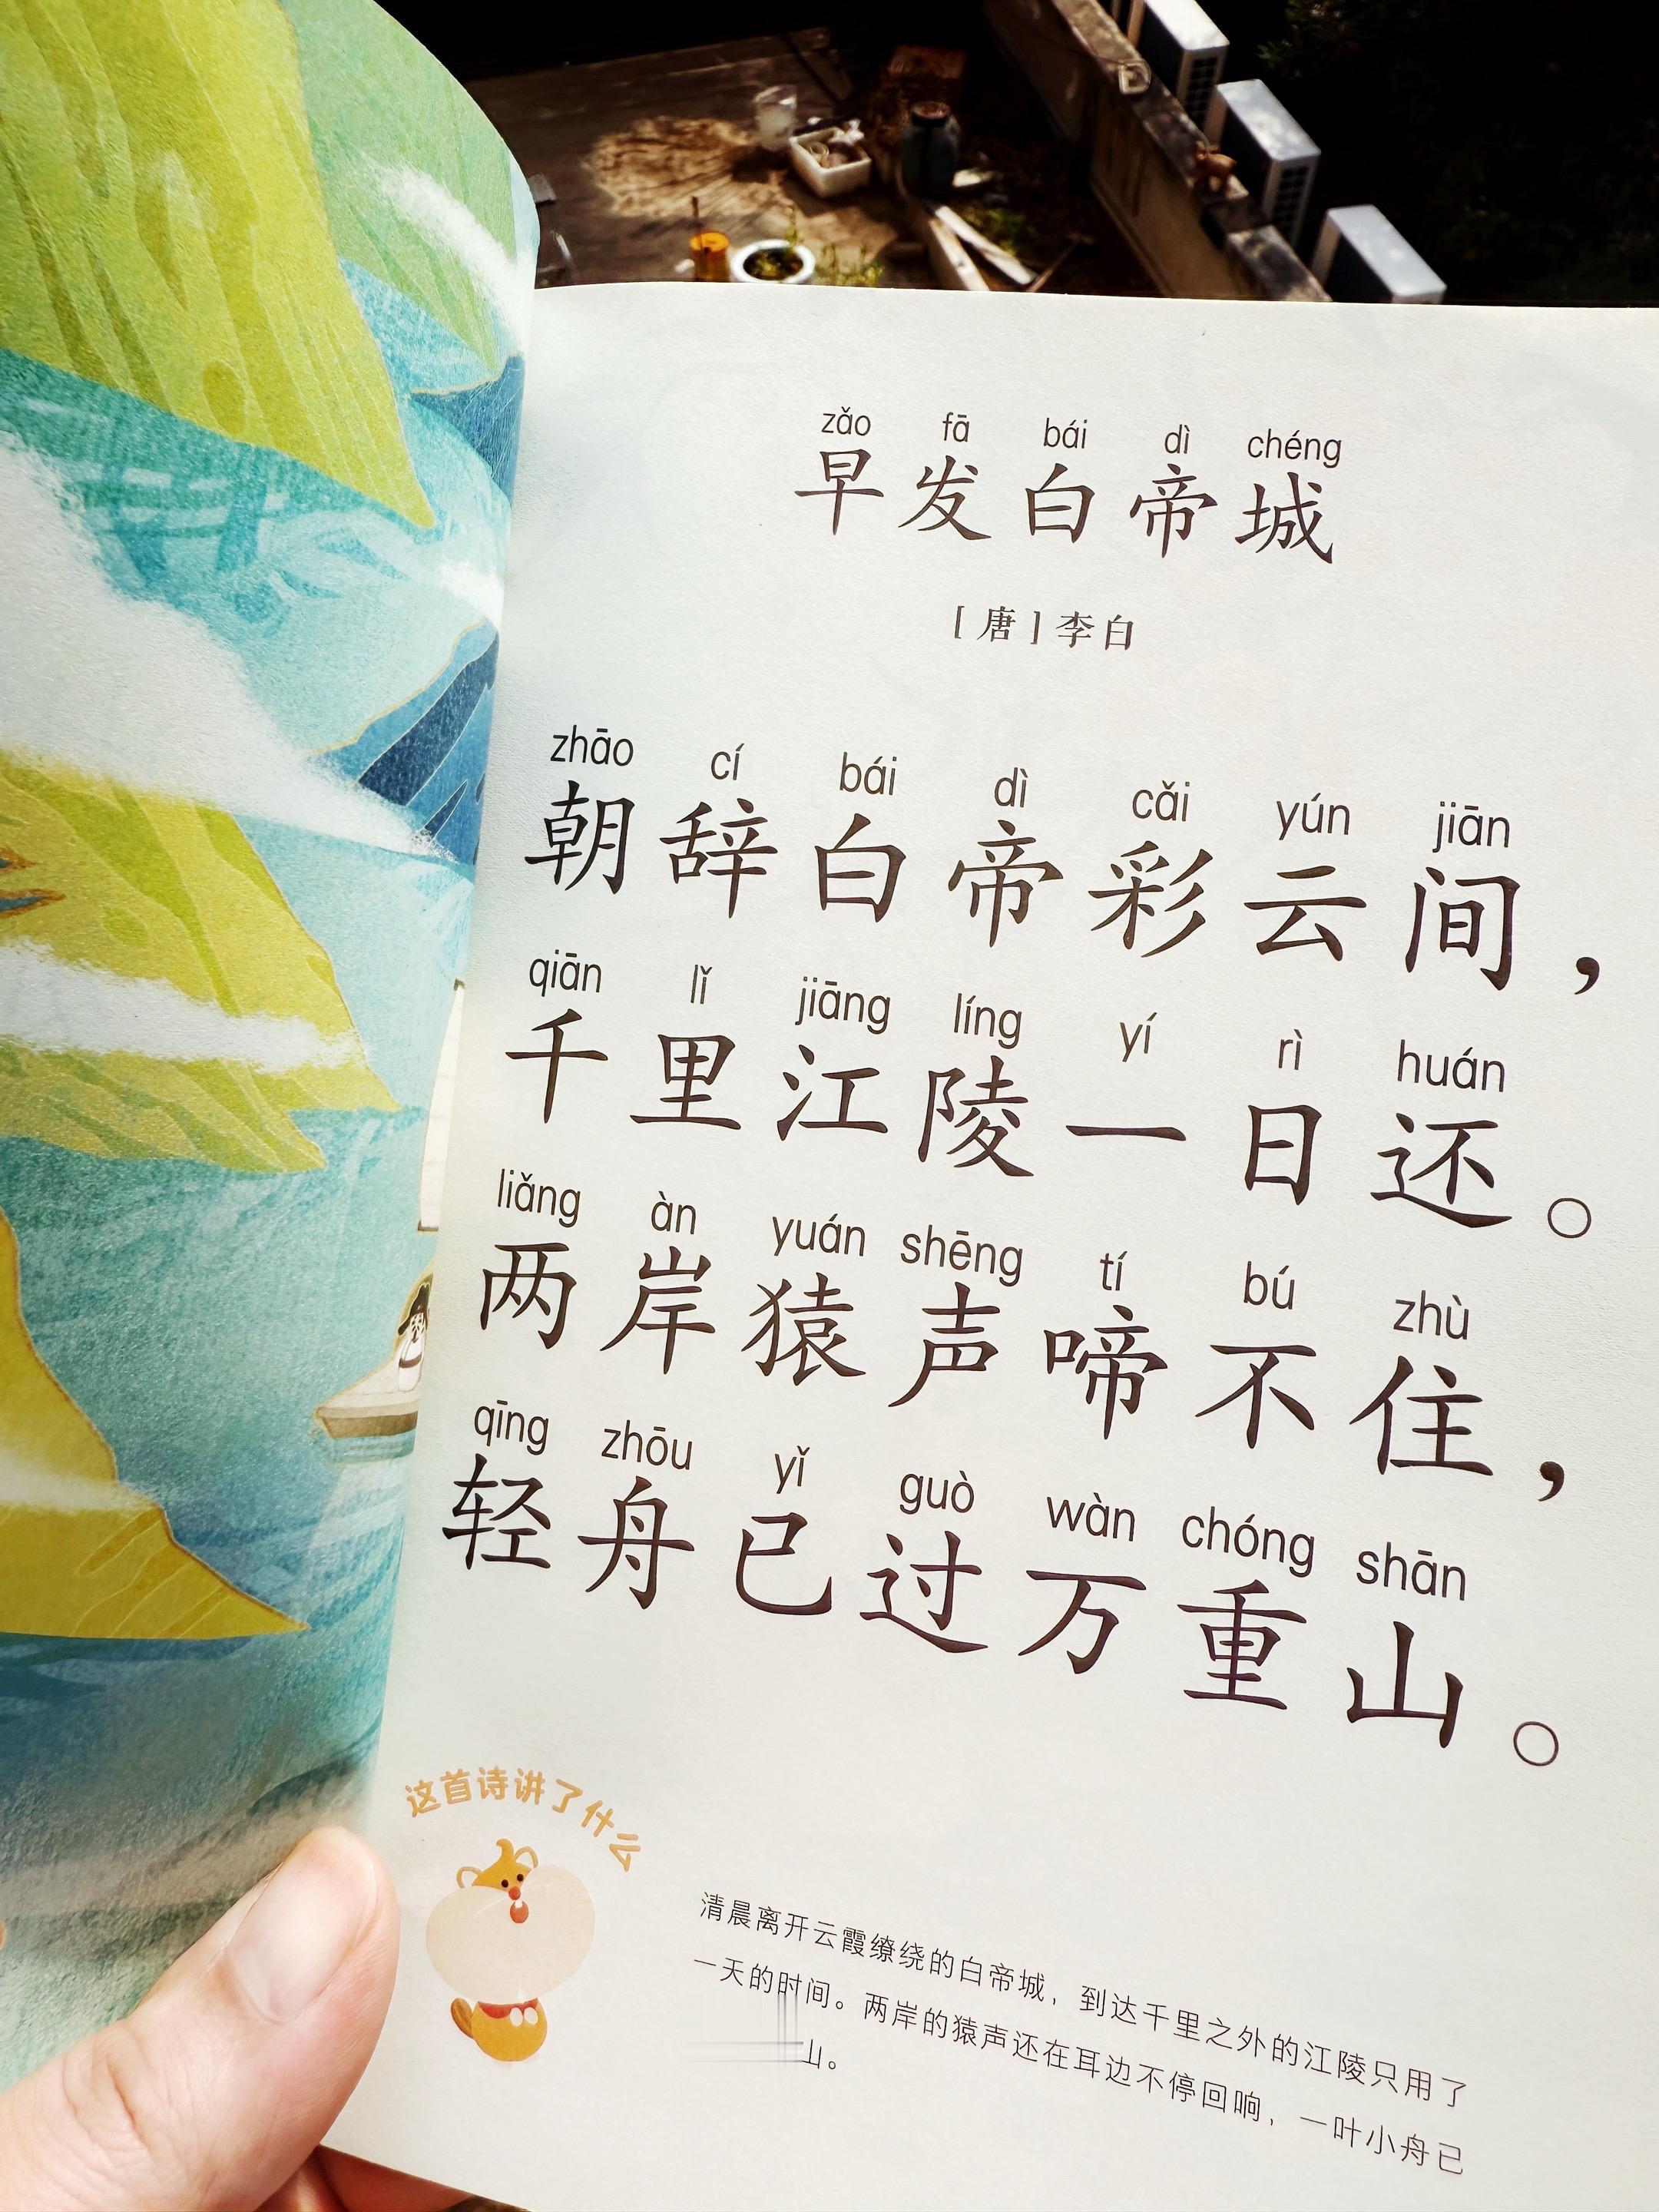 zǎo fā bái dì chéng
早发白帝城
[唐]李白
zhāo cí bái dì cǎi yún jiān
朝辞白帝彩云间，
qiān lǐ jiāng líng yí rì huán
千里江陵一日还。
liǎng àn yuán shēng tí bú zhù
两岸猿声啼不住，
qīng zhōu yǐ guò wàn chóng shān
轻舟已过万重山。
这首诗讲了什么
清晨离开云霞缭绕的白帝城，到达千里之外的江陵只用了
一天的时间。两岸的猿声还在耳边不停回响，一叶小舟已
山。